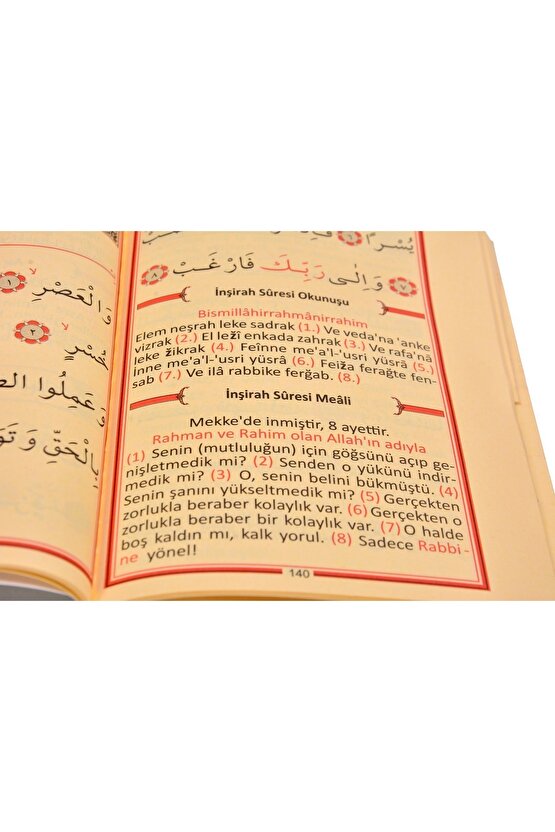 وَ الْعَصْرِ ١
خُسْرٍ ٢
وَ عَمِلُوا
بِالْحَقِّ وَ تَوَ
يُسْرًا ٦ فَاِذَا
٧ وَ اِلٰى رَبِّكَ فَارْغَبْ ٨
İnşirah Sûresi Okunuşu
Bismillâhirrahmânirrahim
Elem neşrah leke sadrak (1.) Ve veda'na 'anke
vizrak (2.) El lezî enkada zahrak (3.) Ve rafa'nâ
leke žikrak (4.) Feînne me'a'l-'usri yüsrâ (5.)
İnne me'a'l-'usri yüsrâ (6.) Feiža ferağte fen-
sab (7.) Ve ilâ rabbike ferğab. (8.)
İnşirah Sûresi Meâli
Mekke'de inmiştir, 8 ayettir.
Rahman ve Rahim olan Allah'ın adıyla
(1) Senin (mutluluğun) için göğsünü açıp ge-
nişletmedik mi? (2) Senden o yükünü indir-
medik mi? (3) O, senin belini bükmüştü. (4)
Senin şanını yükseltmedik mi? (5) Gerçekten
zorlukla beraber kolaylık var. (6) Gerçekten o
zorlukla beraber bir kolaylık var. (7) O halde
boş kaldın mı, kalk yorul. (8) Sadece Rabbi-
ne yönel!
140